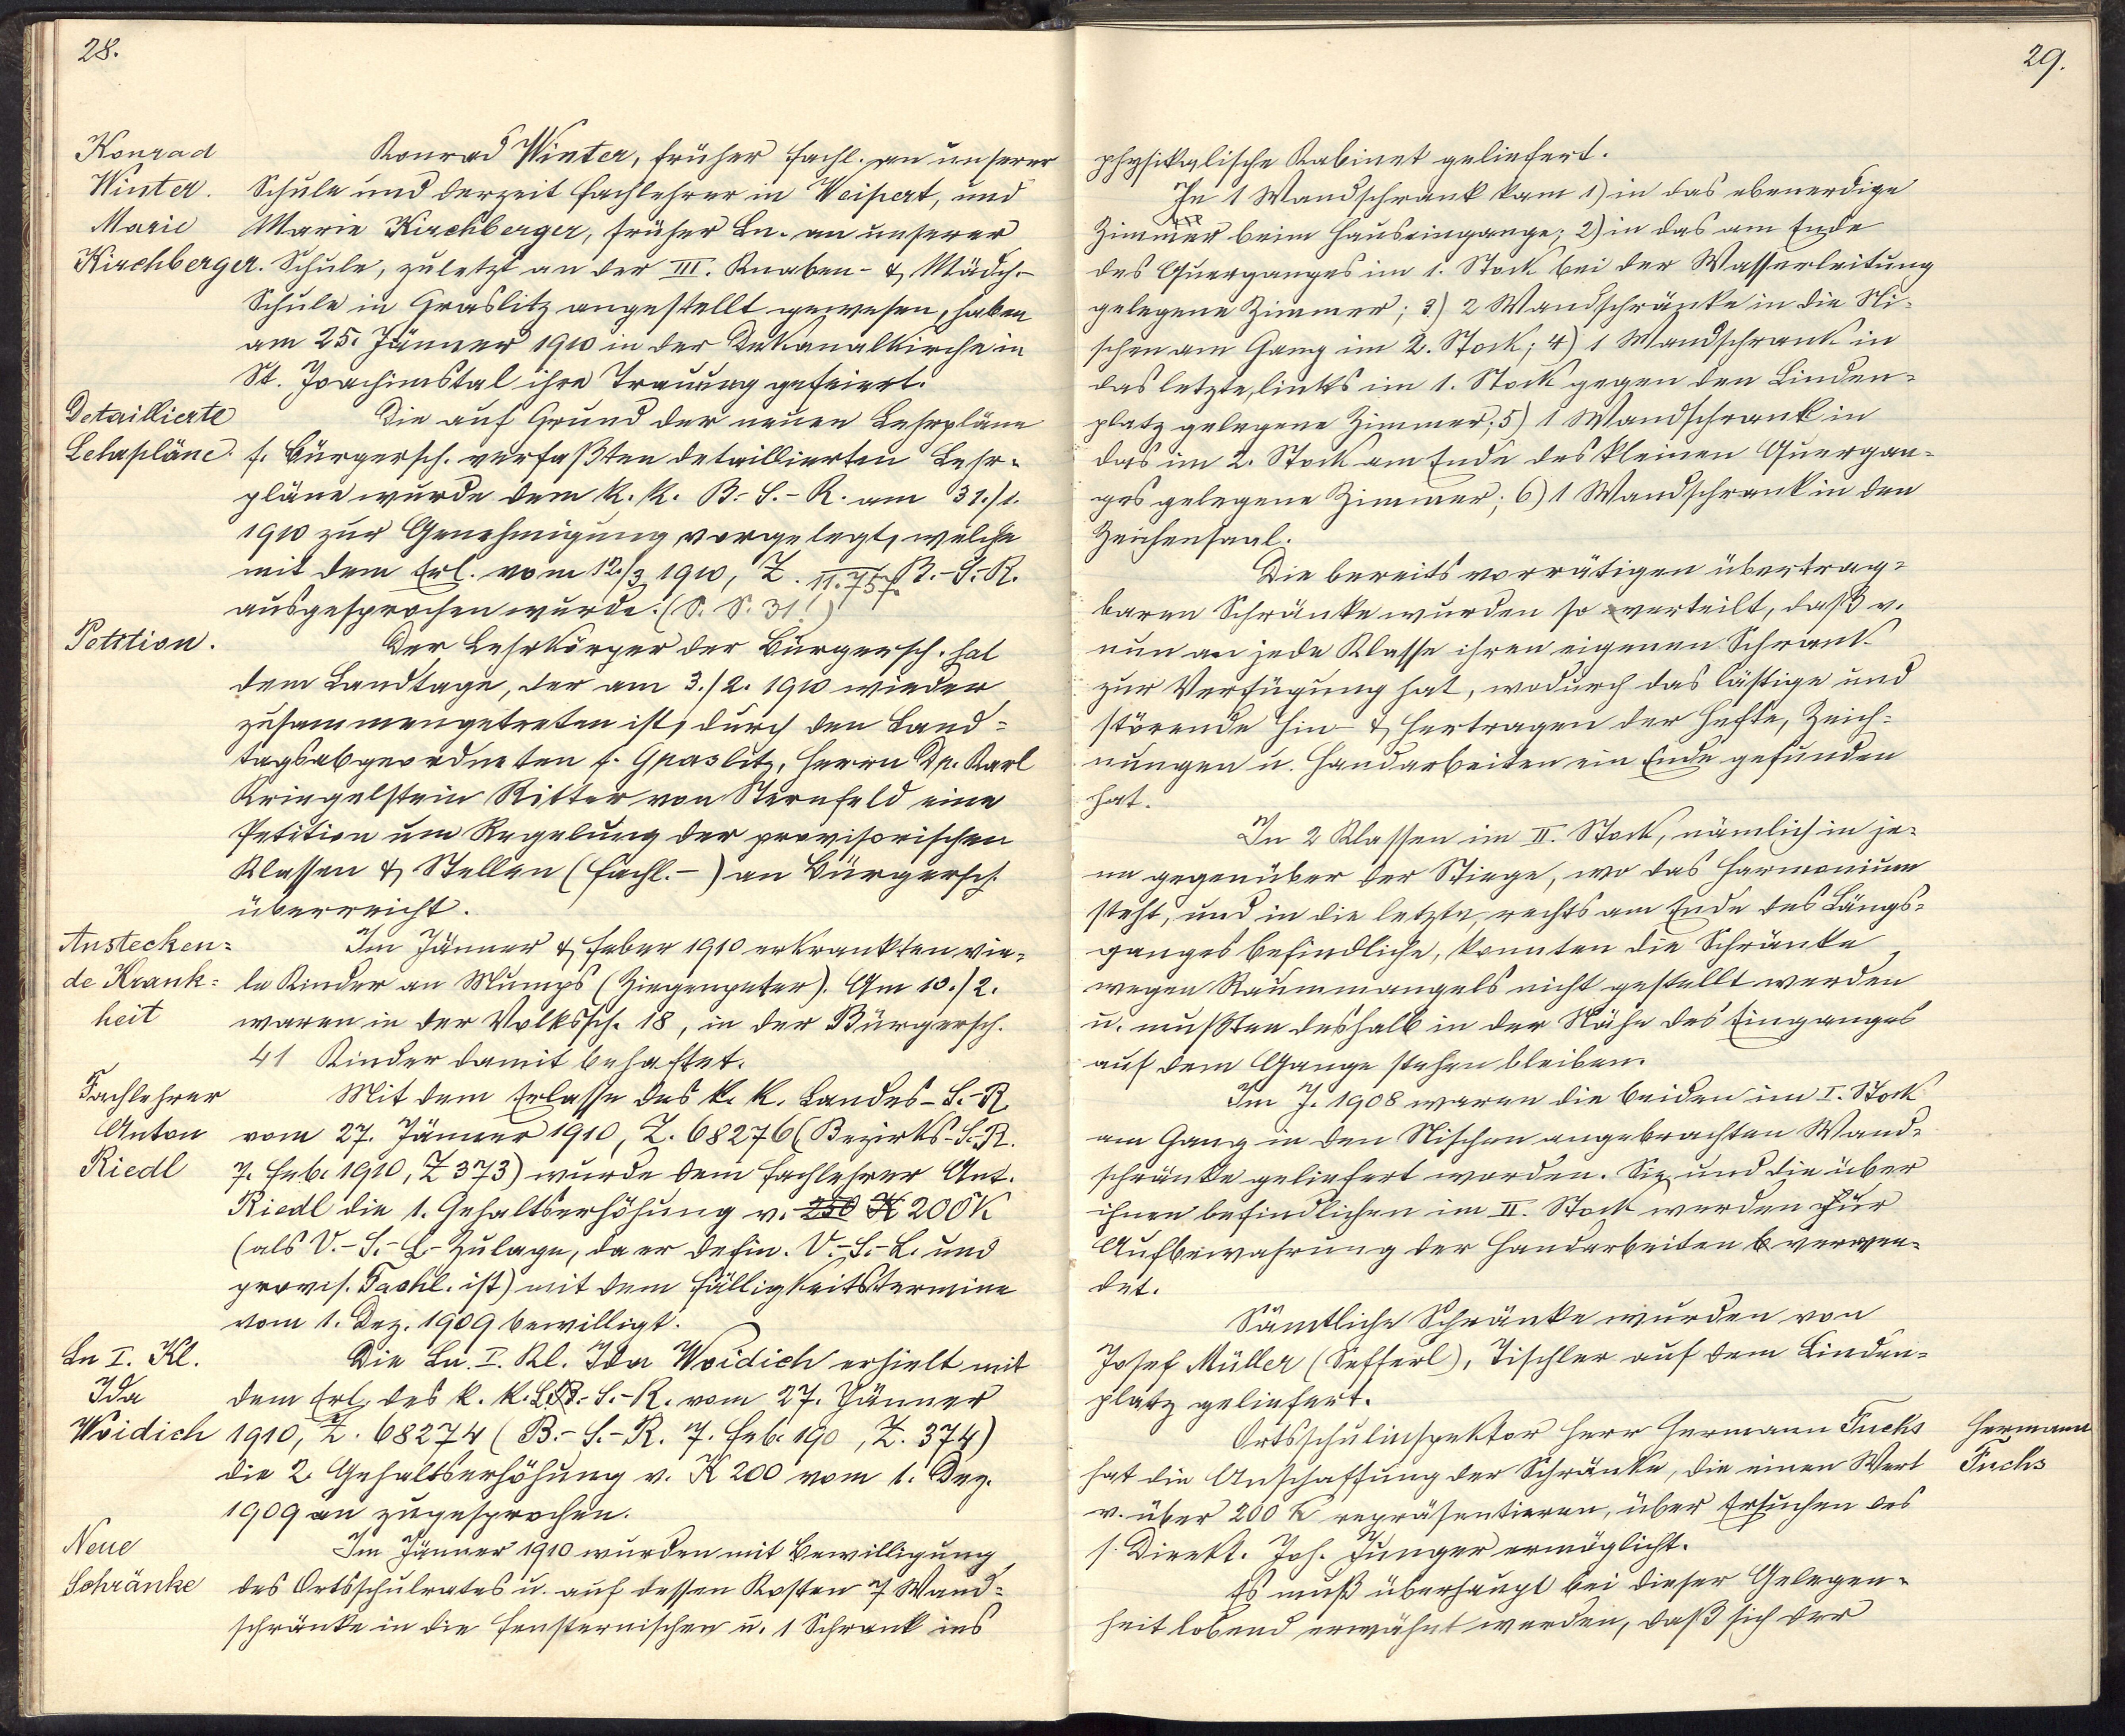 28.
Konrad
Winter.
Marie
Kirchberger.
Konrad Winter, früher Fachl. an unserer
Schule und derzeit Fachlehrer in Weipert, und
Marie Kirchberger, früher Ln. an unserer
Schule, zuletzt an der III. Knaben- & Mädch.-
Schule in Graslitz angestellt gewesen, haben
am 25. Jänner 1910 in der Dekanalkirche in
St. Joachimstal ihre Trauung gefeiert.
Detaillierte
Lehrpläne.
Die auf Grund der neuen Lehrpläne
f. Bürgersch. verfaßten detaillierten Lehr-
pläne wurde dem k. k. B.-S.-R. am 31./1.
1910 zur Genehmigung vorgelegt, welche
mit dem Erl. vom 12./3 1910, Z. 11.757. B.-S.-R.
ausgesprochen wurde. (S. S. 31!)
Petition.
Der Lehrkörper der Bürgersch. hat
dem Landtage, der am 3./2. 1910 wieder
zusammengetreten ist, durch den Land-
tagsabgeordneten f. Graslitz, Herrn Dr. Karl
Kriegelstein Ritter von Sternfeld eine
Petition um Regelung der provisorischen
Klassen & Stellen (Fachl.-) an Bürgersch.
überreicht.
Anstecken-
de Krank-
heit
Im Jänner & Feber 1910 erkrankten vie-
le Kinder an Mumps (Ziegenpeter). Am 10./2.
waren in der Volkssch. 18, in der Bürgersch.
41 Kinder damit behaftet.
Fachlehrer
Anton
Riedl
Mit dem Erlasse des k. k. Landes-S.-R.
vom 27. Jänner 1910, Z. 68276 (Bezirks-S.-R.
7. Feb. 1910, Z 373) wurde dem Fachlehrer Ant.
Riedl die 1. Gehaltserhöhung v. 250 K 200 K
(als V.-S.-L.-Zulage, da er defin. V.-S.-L. und
provis. Fachl. ist) mit dem Fälligkeitstermine
vom 1. Dez. 1909 bewilligt.
Ln I. Kl.
Ida
Woidich
Die Ln. I. Kl. Ida Woidich erhielt mit
dem Erl. des k. k. L.-S.-R. vom 27. Jänner
1910, Z. 68274 (B.-S.-R. 7. Feb. 190, Z. 374)
die 2. Gehaltserhöhung v. K 200 vom 1. Dez.
1909 an zugesprochen.
Neue
Schränke
Im Jänner 1910 wurden mit Bewilligung
des Ortsschulrates u. auf dessen Kosten 7 Wand-
schränke in die Fensternischen u. 1 Schrank ins
29.
physikalische Kabinet geliefert.
Je 1 Wandschrank kam 1) in das ebenerdige
Zimmer beim Hauseingange; 2) in das am Ende
des Querganges im 1. Stock bei der Wasserleitung
gelegene Zimmer; 3) 2 Wandschränke in die Ni-
schen am Gang im 2. Stock; 4) 1 Wandschrank in
das letzte, links im 1. Stock gegen den Linden-
platz gelegene Zimmer; 5) 1 Wandschrank in
das im 2. Stock am Ende des kleinen Quergan-
ges gelegene Zimmer; 6) 1 Wandschrank in den
Zeichensaal.
Die bereits vorrätigen übertrag-
baren Schränke wurden so verteilt, daß v.
nun an jede Klasse ihren eigenen Schrank
zur Verfügung hat, wodurch das lästige und
störende Hin- & Hertragen der Hefte, Zeich-
nungen u. Handarbeiten ein Ende gefunden
hat.
In 2 Klassen im II. Stock, nämlich in je-
ne gegenüber der Stiege, wo das Harmonium
steht, und in die letzte, rechts am Ende des Längs-
ganges befindliche, konnten die Schränke
wegen Raummangels nicht gestellt werden
u. mußten deshalb in der Nähe des Einganges
auf dem Gange stehen bleiben.
Im J. 1908 waren die beiden im I. Stock
am Gang in den Nischen angebrachten Wand-
schränke geliefert worden. Sie und die über
ihnen befindlichen im II. Stock werden zur
Aufbewahrung der Handarbeiten verwen-
det.
Sämtliche Schränke wurden von
Josef Müller (Sefferl), Tischler auf dem Linden-
platz geliefert.
Ortsschulinspektor Herr Hermann Fuchs
hat die Anschaffung der Schränke, die einen Wert
v. über 200 K repräsentieren, über Ersuchen des
s. Direkt. Joh. Junger ermöglicht.
Hermann
Fuchs
Es muß überhaupt bei dieser Gelegen-
heit lobend erwähnt werden, daß sich der